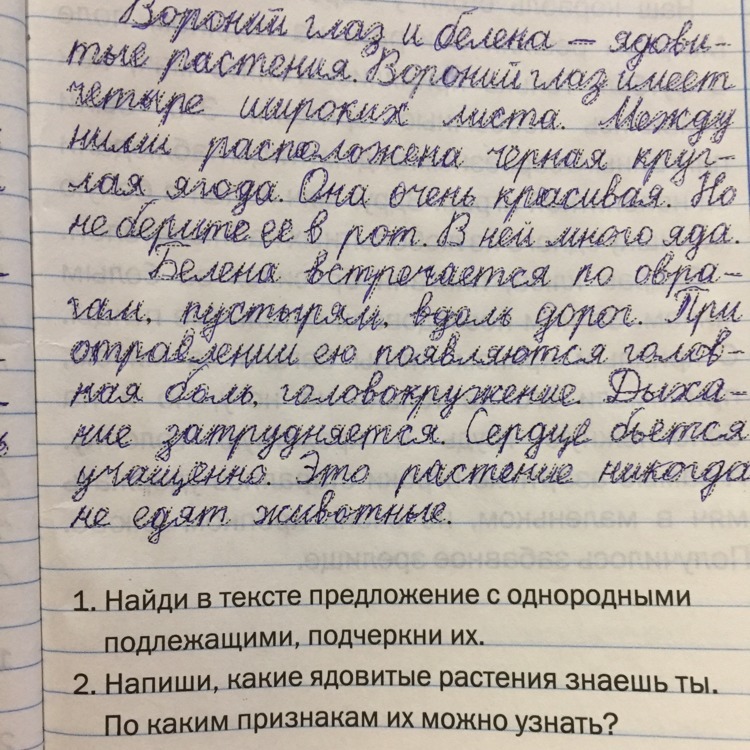 Вороний глаз и белена – ядови-
тые растения. Вороний глаз имеет
четыре широких листа. Между
ними расположена черная круг-
лая ягода. Она очень красивая. Но
не берите ее в рот. В ней много яда.
Белена встречается по овра-
гам, пустырям, вдоль дорог. При
отравлении ею появляются голов-
ная боль, головокружение. Дыха-
ние затрудняется. Сердце бьется
учащенно. Это растение никогда
не едят животные.
1. Найди в тексте предложение с однородными
подлежащими, подчеркни их.
2. Напиши, какие ядовитые растения знаешь ты.
По каким признакам их можно узнать?